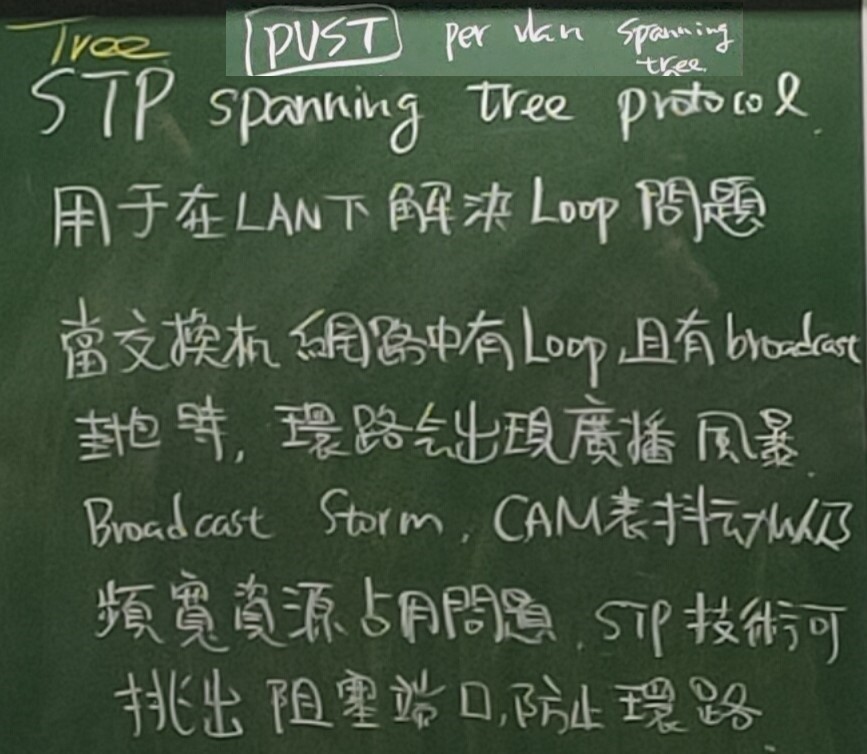 Tree
PVST per vlan spanning tree
STP spanning tree protocol.
用于在LAN下解決Loop問題
當交換机網路中有Loop,且有broadcast
封包時,環路会出現廣播風暴.
Broadcast Storm, CAM表抖动以及
頻寬資源占用問題.STP技術可
挑出阻塞端口,防止環路